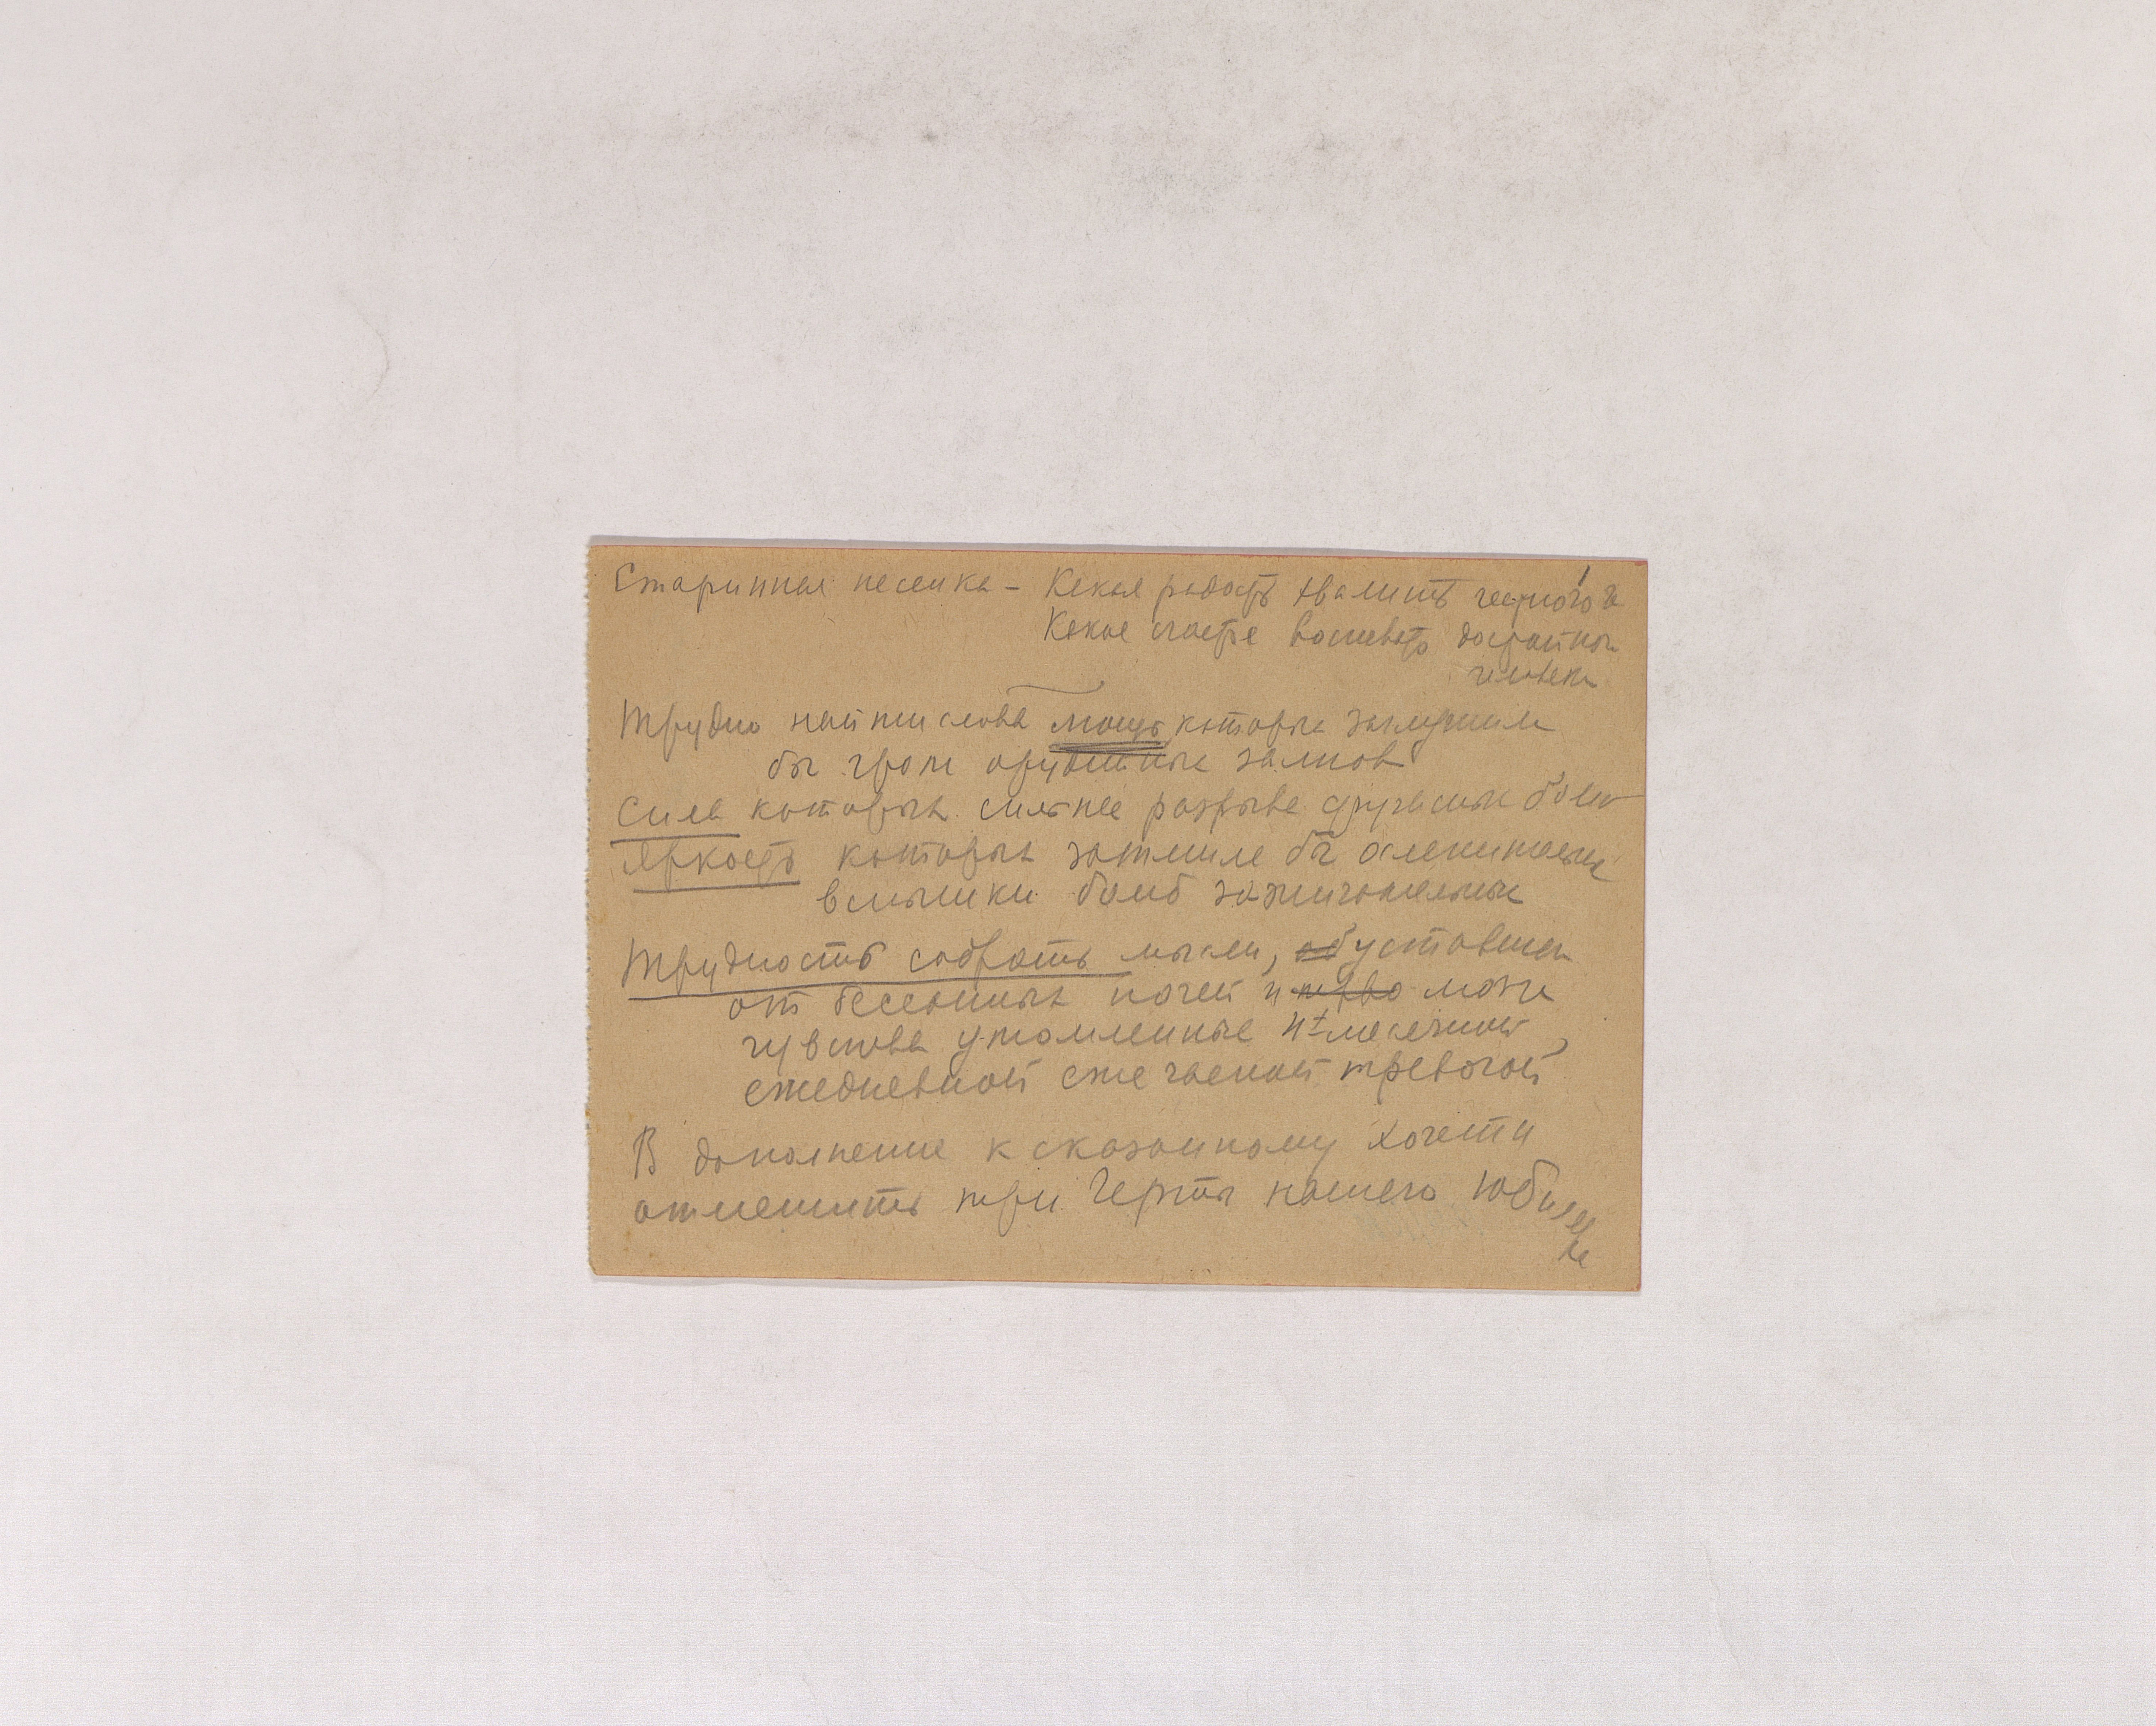 Старинная песенка – Какая радость хвалить честного ч
Какое счастье воспевать достойного
человека
Трудно найти слова мощь которых заглушила
бы гром орудийных залпов
Сила которых сильнее разрыва фугасных бомб
Яркость которых затмила бы ослепительные
вспышки бомб зажигательных
Трудность собрать мысли, об уставшем
от бессонных ночей и мозгу
чувства утомленные 4х месячной,
ежедневной ежечасной тревогой
В дополнение к сказанному хочется
отметить три черты нашего юбиля
ра